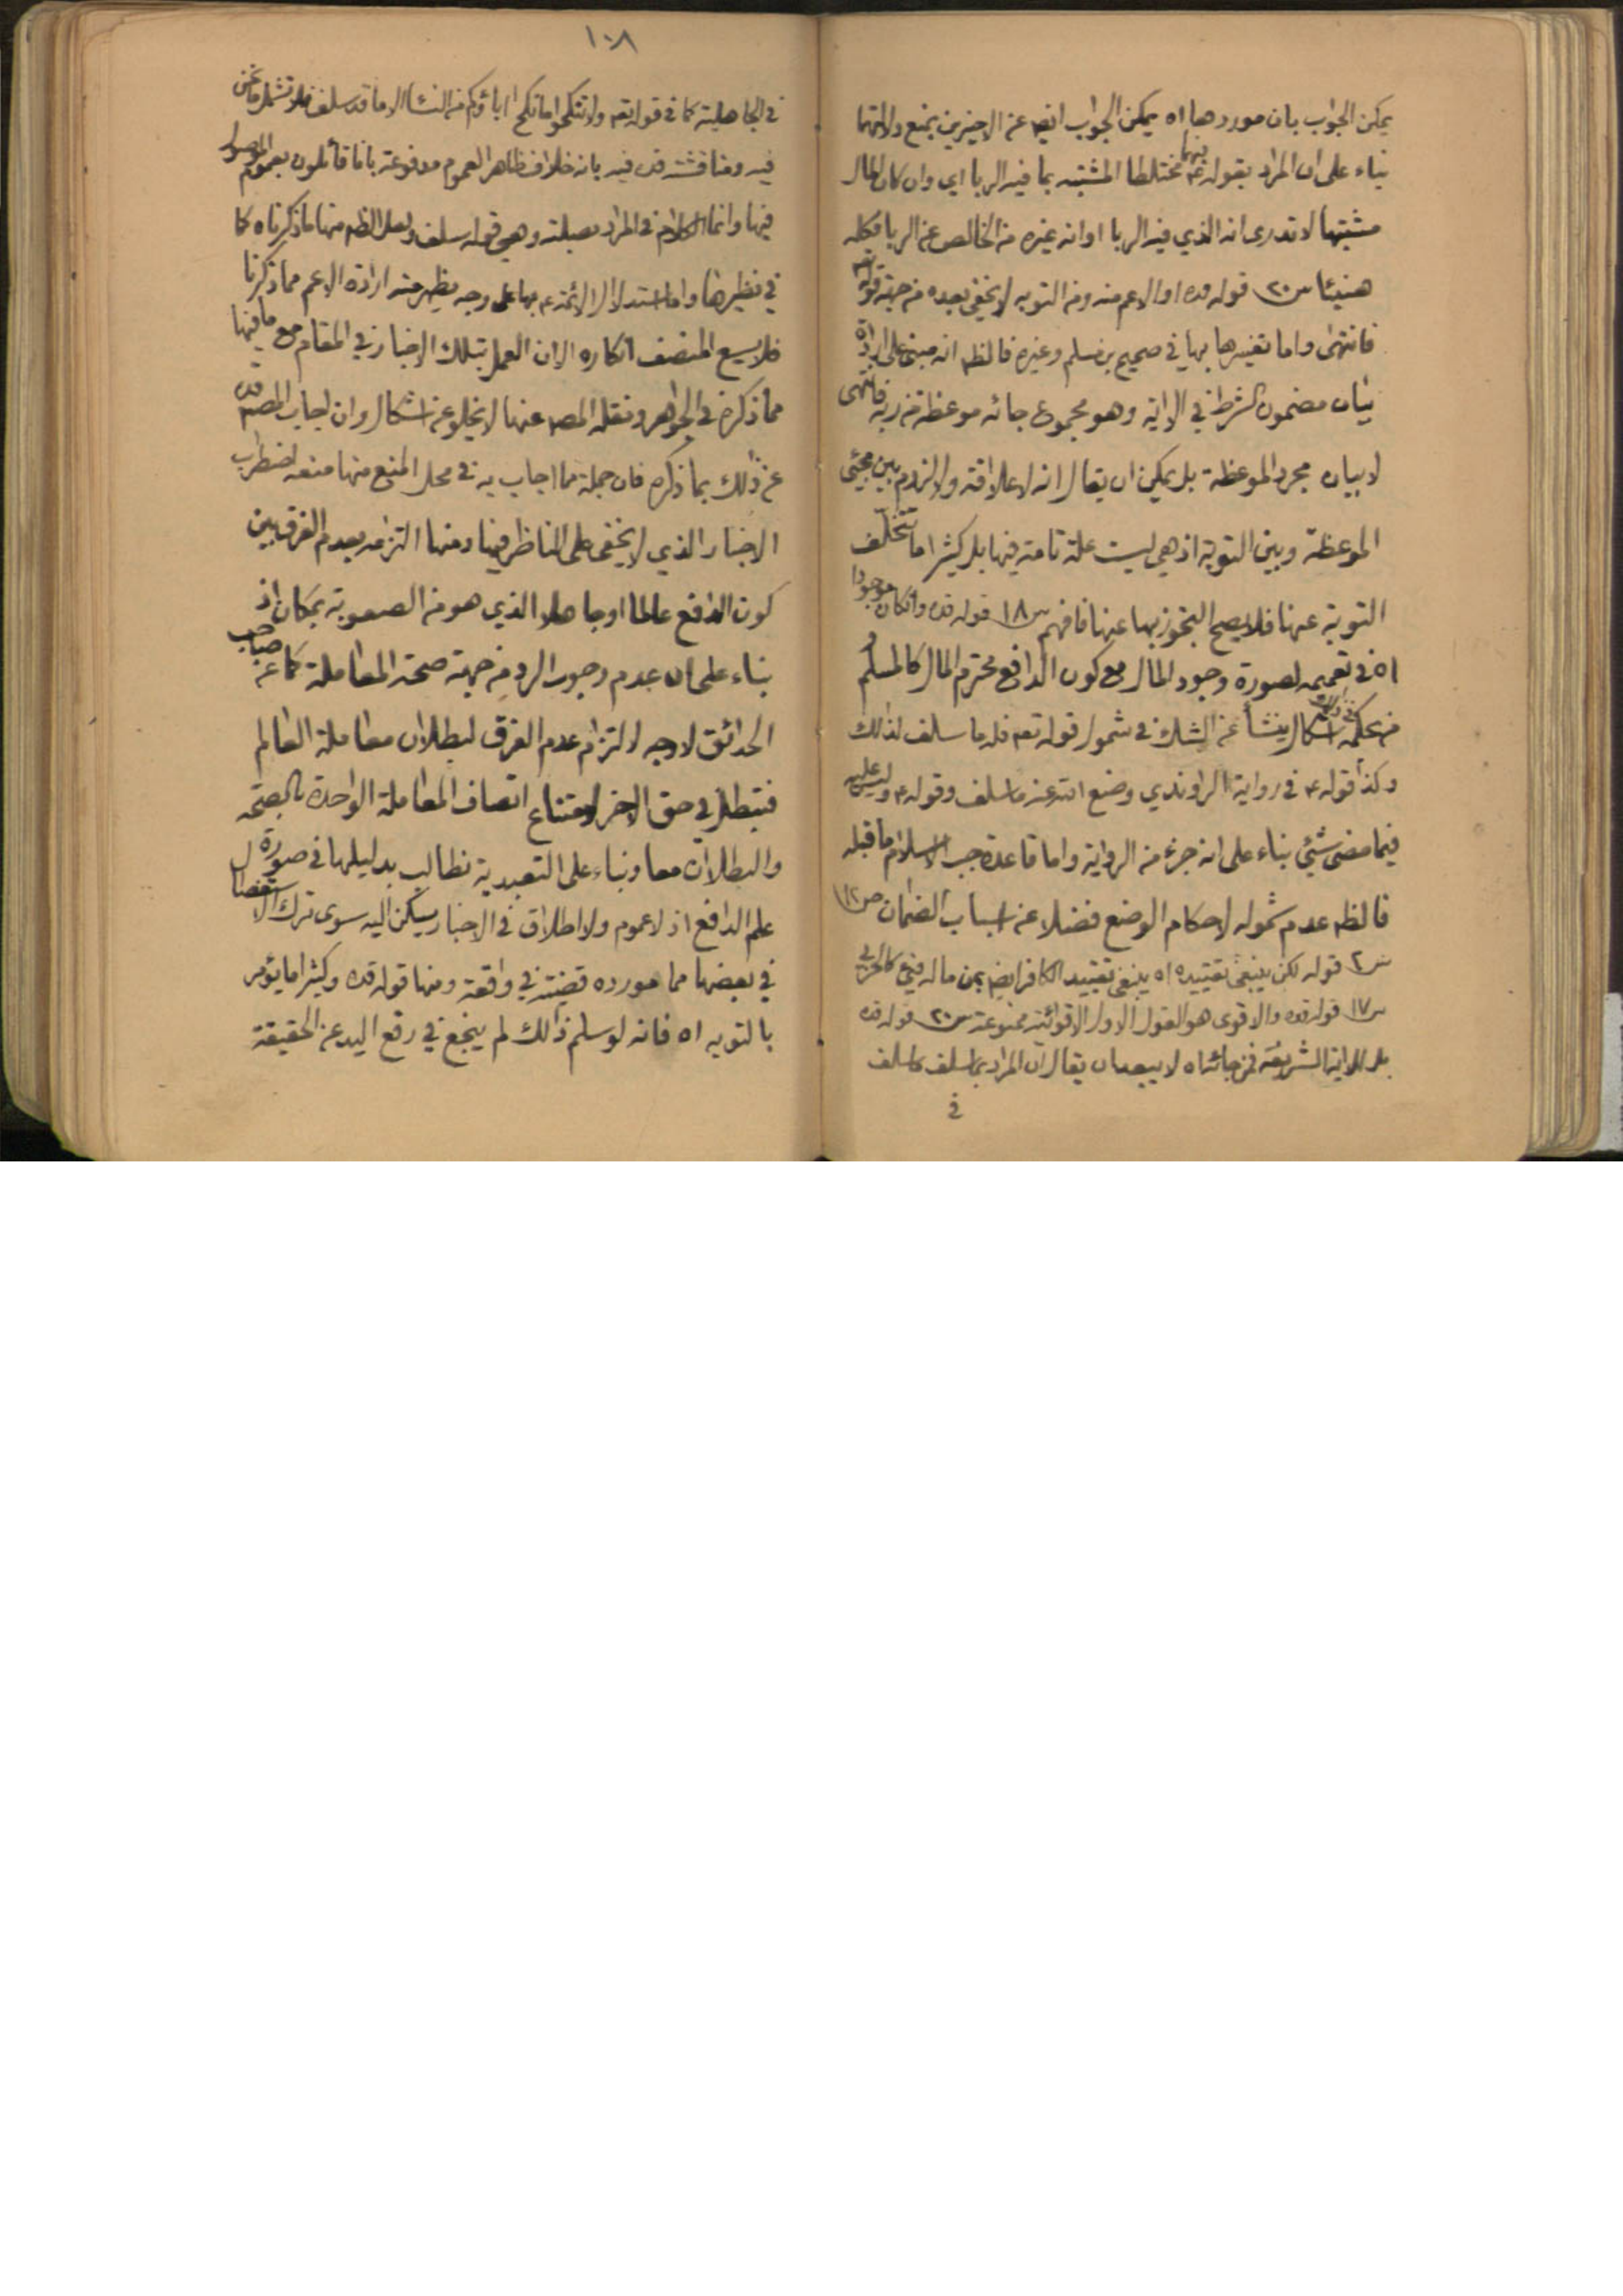 يمكن الجواب بان موردها اه يمكن الجواب ايضا عن الاخيرين بمنع دلالتهما
بناء على ان المراد بقوله ع مختلطا المشتبه بما فيه الربا اي وان كان المال
فيهما
مشتبها لا تدرى انه الذي فيه الربا او انه غيره من الخالص عن الربا فكله
هنيئا س٢٠ قوله قده او الاعم منه ومن التوبه لا يخفى بعده من جهة قوله تعه
فانتهى واما تفسيرها بها في صحيح بن مسلم وغيره فالظه انه مبنى على ارادة
بيان مضمون الشرط في الاية وهو مجموع جائه موعظة من ربه فانتهى
لا بيان مجرد الموعظة بل يمكن ان يقال انه لا علاقة ولا لزوم بين مجيئ
الموعظة وبين التوبة اذ هي ليست علة تامة فيها بل كثيرا ما تتخلف
التوبة عنها فلا يصح التجوز بها عنها فافهم س١٨ قوله قده وان كان موجودا
اه في تعميمه لصورة وجود المال مع كون الدافع محترم المال كالمسلم
من بحكمه اشكال ينشأ عن الشك في شمول قوله تعه فله ما سلف لذلك
وكذا قوله ع في رواية الراوندي وضع الله عنه ما سلف وقوله ع وليس عليه
فيما مضى شيئ بناء على انه جزء من الرواية واما قاعدة جب الاسلام ما قبله
فالظه عدم شموله لاحكام الوضع فضلا عن اسباب الضمان ص١٢
س٢ قوله لكن ينبغي تقييده اه ينبغي تقييد الكافر ايضا بمن ماله فيئ كالحربي
س١٧ قوله قده والاقوى هو القول الاول الاقوائية ممنوعة س٢٠ قوله قده
بل للاية الشريفة فمن جائه اه لا يبعد ان يقال ان المراد بما سلف ما سلف
في
١٠٨
في الجاهلية كما في قوله تعه ولا تنكحوا ما نكح اباؤكم من النساء الا ما قد سلف فلا تشمل ما نحن
فيه ومناقشته قده فيه بانه خلاف ظاهر العموم مدفوعة بانا قائلون بعموم الموصول
فيها وانما الكلام في المراد بصلته وهي قوله سلف ولعل الظه منها ما ذكرناه كما
في نظيرها واما استدلال الائمة ع بها على وجه يظهر منه ارادة الاعم مما ذكرنا
فلا يسع المنصف انكاره الا ان العمل بتلك الاخبار في المقام مع ما فيها
مما ذكره في الجواهر ونقله المصه عنها لا يخلو عن اشكال وان اجاب المصه قده
عن ذلك بما ذكره فان جملة مما اجاب به في محل المنع منها منعه اضطراب
الاخبار الذي لا يخفى على الناظر فيها ومنها التزامه بعدم الفرق بين
كون الدافع عالما او جاهلا الذي هو من الصعوبة بمكان اذ
بناء على ان عدم وجوب الرد من جهة صحة المعاملة كما عن صاحب
الحدائق لا وجه لالتزام عدم الفرق لبطلان معاملة العالم
فتبطل في حق الاخر لامتناع اتصاف المعاملة الواحدة بالصحة
والبطلان معا وبناء على التعبدية نطالب بدليلها في صورة
علم الدافع اذ لا عموم ولا اطلاق في الاخبار يسكن اليه سوى ترك الاستفصال
في بعضها مما مورده قضية في واقعة ومنها قوله قده وكثيرا ما يؤمر
بالتوبه اه فانه لو سلم ذلك لم ينجع في رفع اليد عن الحقيقة